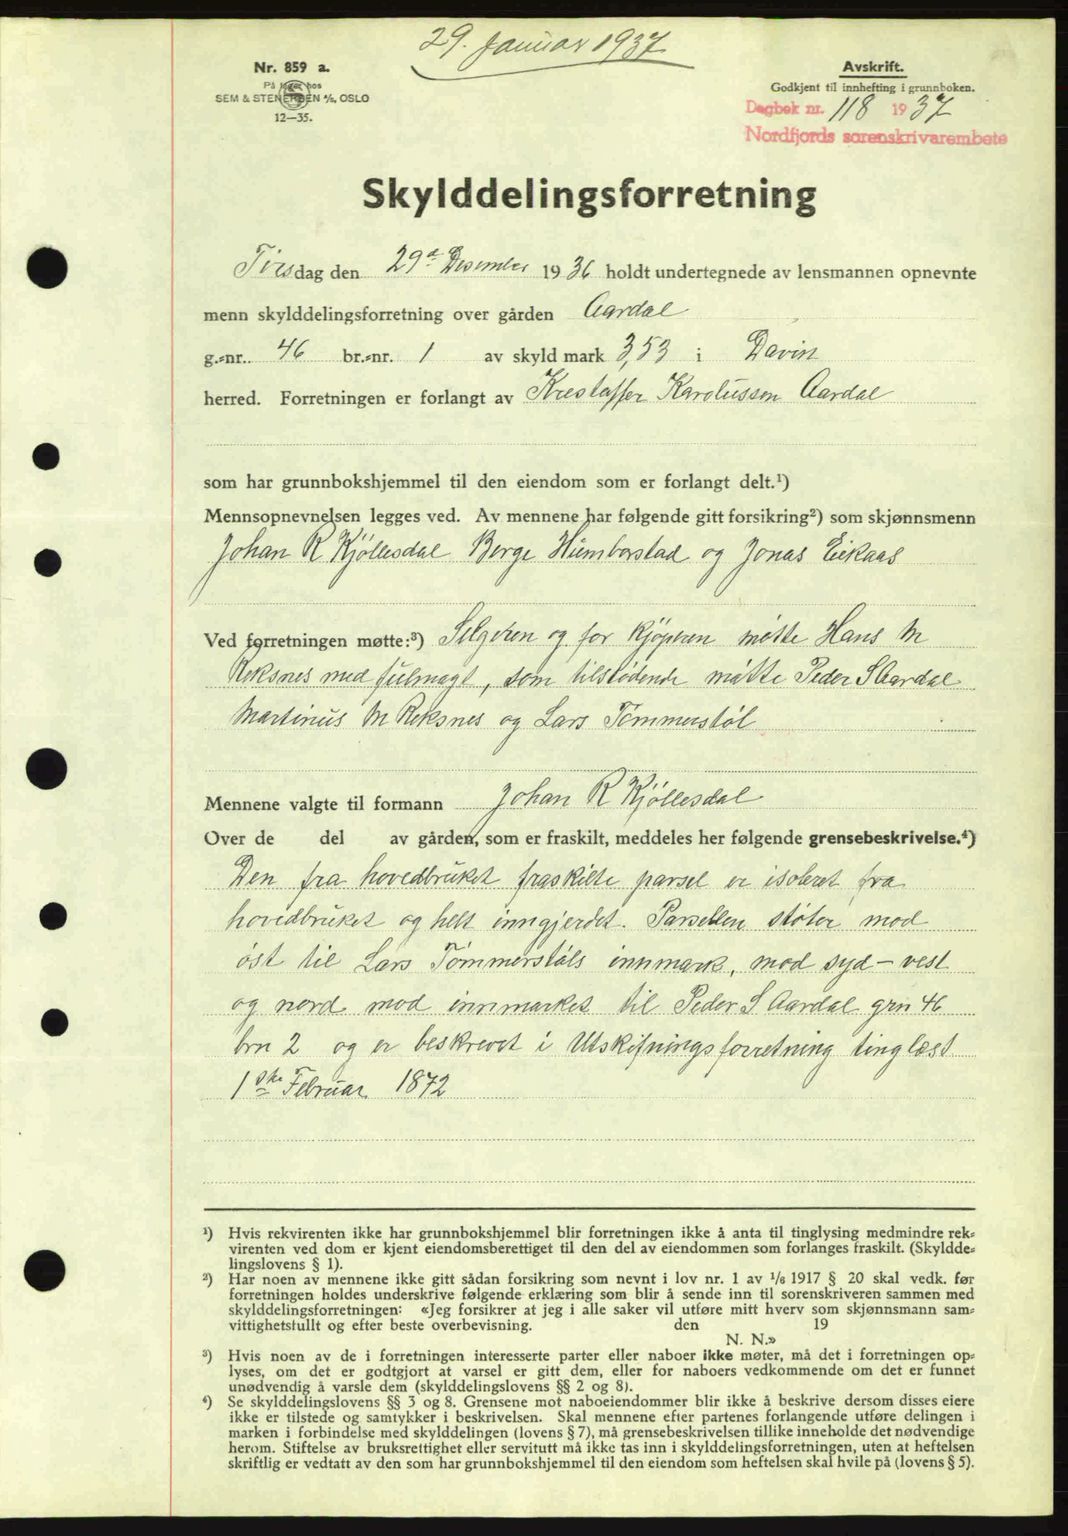 29. Januar 1937
Nr. 859 a.
På lager hos
SEM & STENERSEN A/S, OSLO
12—35.
Avskrift.
Godkjent til innhefting i grunnboken.
Dagbok nr. 118 1937
Nordfjords sorenskrivarembete
Skylddelingsforretning
Tirsdag den 29de Desember 1936 holdt undertegnede av lensmannen opnevnte
menn skylddelingsforretning over gården Aardal
g.-nr. 46 br.-nr. 1 av skyld mark 3,53 i Davik
herred. Forretningen er forlangt av Krestoffer Karolusson Aardal
som har grunnbokshjemmel til den eiendom som er forlangt delt.¹)
Mennsopnevnelsen legges ved. Av mennene har følgende gitt forsikring²) som skjønnsmenn
Johan R Kjöllesdal Berge Humborstad og Jonas Eikaas
Ved forretningen møtte:³) Selgeren og for kjöperen møtte Hans M
Reksnes med fulmagt, som tilstødende møtte Peder S Aardal
Martinus M Reksnes og Lars Tømmerstøl
Mennene valgte til formann Johan R Kjøllesdal
Over de del av gården, som er fraskilt, meddeles her følgende grensebeskrivelse.⁴)
Den fra hovedbruket fraskilte parsel er isoleret fra
hovedbruket og helt inngjerdet. Parsellen støter mod
øst til Lars Tømmerstøls innmark, mod syd - vest
og nord mod innmarket til Peder S Aardal grn 46
brn 2 og er beskrevet i Utskifningsforretning tinglæst
1ste Februar 1872
¹) Hvis rekvirenten ikke har grunnbokshjemmel blir forretningen ikke å anta til tinglysing medmindre rek-
virenten ved dom er kjent eiendomsberettiget til den del av eiendommen som forlanges fraskilt. (Skyldde-
lingslovens § 1).
²) Har noen av mennene ikke gitt sådan forsikring som nevnt i lov nr. 1 av 1/6 1917 § 20 skal vedk. før
forretningen holdes underskrive følgende erklæring som blir å sende inn til sorenskriveren sammen med
skylddelingsforretningen: «Jeg forsikrer at jeg i alle saker vil utføre mitt hverv som skjønnsmann sam-
vittighetsfullt og efter beste overbevisning. den 19
N. N.»
³) Hvis noen av de i forretningen interesserte parter eller naboer ikke møter, må det i forretningen op-
lyses, om det er godtgjort at varsel er gitt dem, eller for naboers vedkommende om det er funnet
unødvendig å varsle dem (skylddelingslovens §§ 2 og 8).
⁴) Se skylddelingslovens §§ 3 og 8. Grensene mot naboeiendommer blir ikke å beskrive dersom disses eiere
ikke er tilstede og samtykker i beskrivelsen. Skal mennene efter partenes forlangende utføre delingen i
marken i forbindelse med skylddelingen (lovens § 7), må grensebeskrivelsen tillike inneholde det nødvendige
herom. Stiftelse av bruksrettighet eller servitutt må ikke tas inn i skylddelingsforretningen, uten at heftelsen
skriftlig er vedtatt av den som har grunnbokshjemmel til den eiendom som heftelsen skal hvile på (lovens § 5).